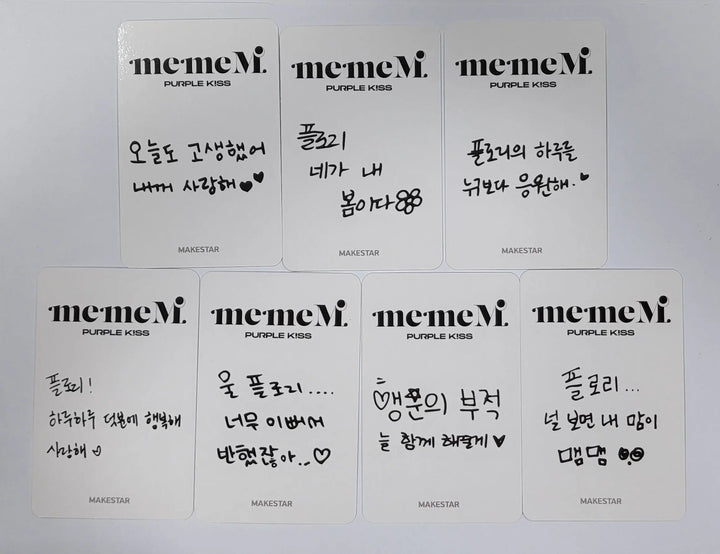 mememi.
PURPLE K!SS
오늘도 고생했어
내꺼 사랑해
MAKESTAR
mememi.
PURPLE K!SS
플로리
네가 내
봄이다
MAKESTAR
mememi.
PURPLE K!SS
플로리의 하루를
누구보다 응원해.
MAKESTAR
mememi.
PURPLE K!SS
플로리!
하루하루 덕분에 행복해
사랑해
MAKESTAR
mememi.
PURPLE K!SS
울 플로리....
너무 이뻐서
반했잖아...
MAKESTAR
mememi.
PURPLE K!SS
의 부적
늘 함께 해줄게
MAKESTAR
mememi.
PURPLE K!SS
플로리...
널 보면 내 맘이
맴맴
MAKESTAR